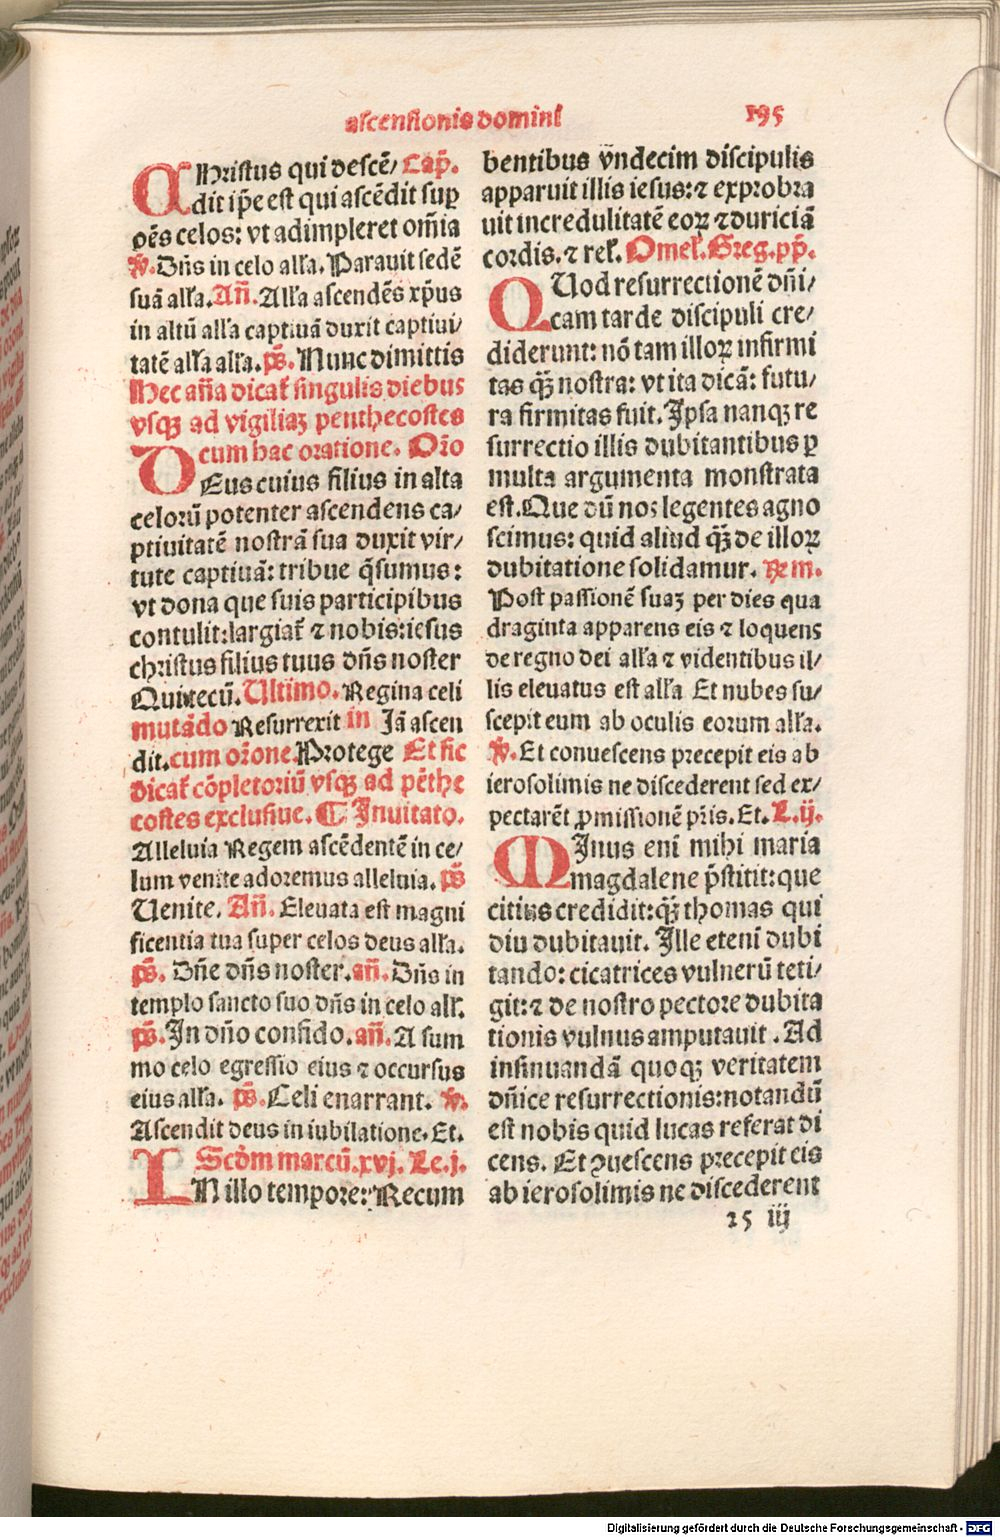 ascensionis domini 195
Christus qui descē/ Cap̄.
dit ip̄e est qui ascēdit sup
oēs celos: vt adimpleret om̄ia
v̄. Dn̄s in celo alľa. Parauit sedē
suā alľa. An̄. Alľa ascendēs xp̄us
in altū alľa captiuā duxit captiui/
tatē alľa alľa. ps̄. Nunc dimittis
Hec an̄a dicat᷑ singulis diebus
vsqꝫ ad vigiliaꝫ penthecostes
cum hac oratione. Or̄o
DEus cuius filius in alta
celorū potenter ascendens ca/
ptiuitatē nostrā sua duxit vir/
tute captiuā: tribue q̄sumus:
vt dona que suis participibus
contulit: largiat᷑ ⁊ nobis: iesus
christus filius tuus dn̄s noster
Qui tecū. Ultimo. Regina celi
mutādo Resurrexit in Jā ascen
dit. cum or̄one. Protege Et sic
dicat᷑ cōpletoriū vsqꝫ ad pēthe
costes exclusiue. ¶ Inuitato.
Alleluia Regem ascēdentē in ce/
lum venite adoremus alleluia. ps̄
Uenite. An̄. Eleuata est magni
ficentia tua super celos deus alľa.
ps̄. Dn̄e dn̄s noster. an̄. Dn̄s in
templo sancto suo dn̄s in celo alľ.
ps̄. In dn̄o confido. an̄. A sum
mo celo egressio eius ⁊ occursus
eius alľa. ps̄. Celi enarrant. v̄.
Ascendit deus in iubilatione. Et.
Scd̄m marcū. xvj. Le. j.
IN illo tempore: Recum
bentibus vndecim discipulis
apparuit illis iesus: ⁊ exprobra
uit incredulitatē eoꝝ ⁊ duriciā
cordis. ⁊ reľ. Omeľ. Greg. pp̄.
QUod resurrectionē dn̄i/
cam tarde discipuli cre/
diderunt: nō tam illoꝝ infirmi
tas qꝫ̄ nostra: vt ita dicā: futu/
ra firmitas fuit. Ipsa nanqꝫ re
surrectio illis dubitantibus ꝑ
multa argumenta monstrata
est. Que dū nos legentes agno
scimus: quid aliud qꝫ̄ de illoꝝ
dubitatione solidamur. ℞ m.
Post passionē suaꝫ per dies qua
draginta apparens eis ⁊ loquens
de regno dei alľa ⁊ videntibus il/
lis eleuatus est alľa Et nubes su/
scepit eum ab oculis eorum alľa.
v̄. Et conuescens precepit eis ab
ierosolimis ne discederent sed ex/
pectarēt ꝓmissionē pr̄is. Et. L. ij.
MInus eni mihi maria
magdalene p̄stitit: que
citius credidit: qꝫ̄ thomas qui
diu dubitauit. Ille etenī dubi
tando: cicatrices vulnerū teti/
git: ⁊ de nostro pectore dubita
tionis vulnus amputauit. Ad
insinuandā quoqꝫ veritatem
dn̄ice resurrectionis: notandū
est nobis quid lucas referat di
cens. Et ꝯuescens precepit eis
ab ierosolimis ne discederent
25 iij
Digitalisierung gefördert durch die Deutsche Forschungsgemeinschaft - DFG